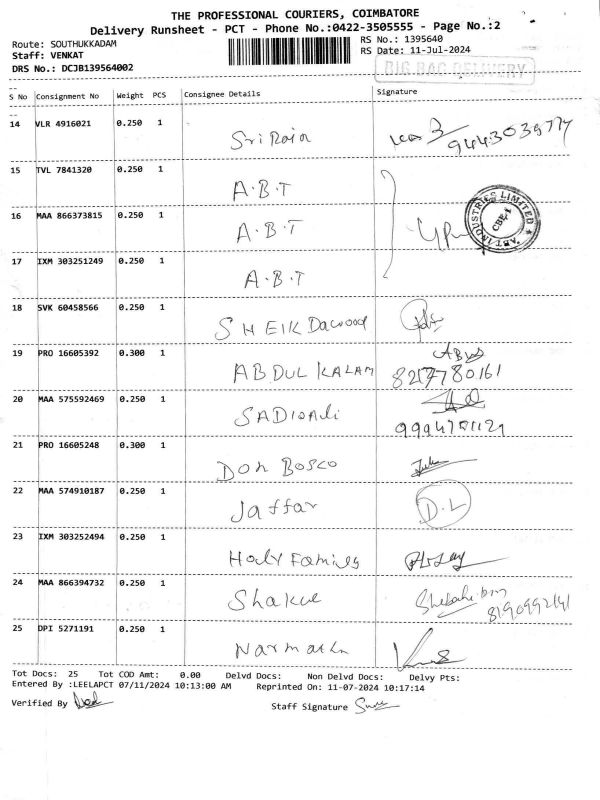 THE PROFESSIONAL COURIERS, COIMBATORE
Delivery Runsheet - PCT - Phone No.:0422-3505555 - Page No.:2
Route: SOUTHUKKADAM RS No.: 1395640
Staff: VENKAT RS Date: 11-Jul-2024
DRS No.: DCJB139564002
BIG BAG DELIVERY
S No Consignment No Weight PCS Consignee Details Signature
14 VLR 4916021 0.250 1 Sri Raja
15 TVL 7841320 0.250 1 A.B.T
16 MAA 866373815 0.250 1 A.B.T
ABT INDUSTRIES LIMITED CBE-1
17 IXM 303251249 0.250 1 A.B.T
18 SVK 60458566 0.250 1 SHEIK Dawood
19 PRO 16605392 0.300 1 ABDUL KALAM
20 MAA 575592469 0.250 1
21 PRO 16605248 0.300 1 DON BOSCO
22 MAA 574910187 0.250 1 Jaffar D.L
23 IXM 303252494 0.250 1 Holy Family
24 MAA 866394732 0.250 1 8190992141
25 DPI 5271191 0.250 1
Tot Docs: 25 Tot COD Amt: 0.00 Delvd Docs: Non Delvd Docs: Delvy Pts:
Entered By :LEELAPCT 07/11/2024 10:13:00 AM Reprinted On: 11-07-2024 10:17:14
Verified By Staff Signature